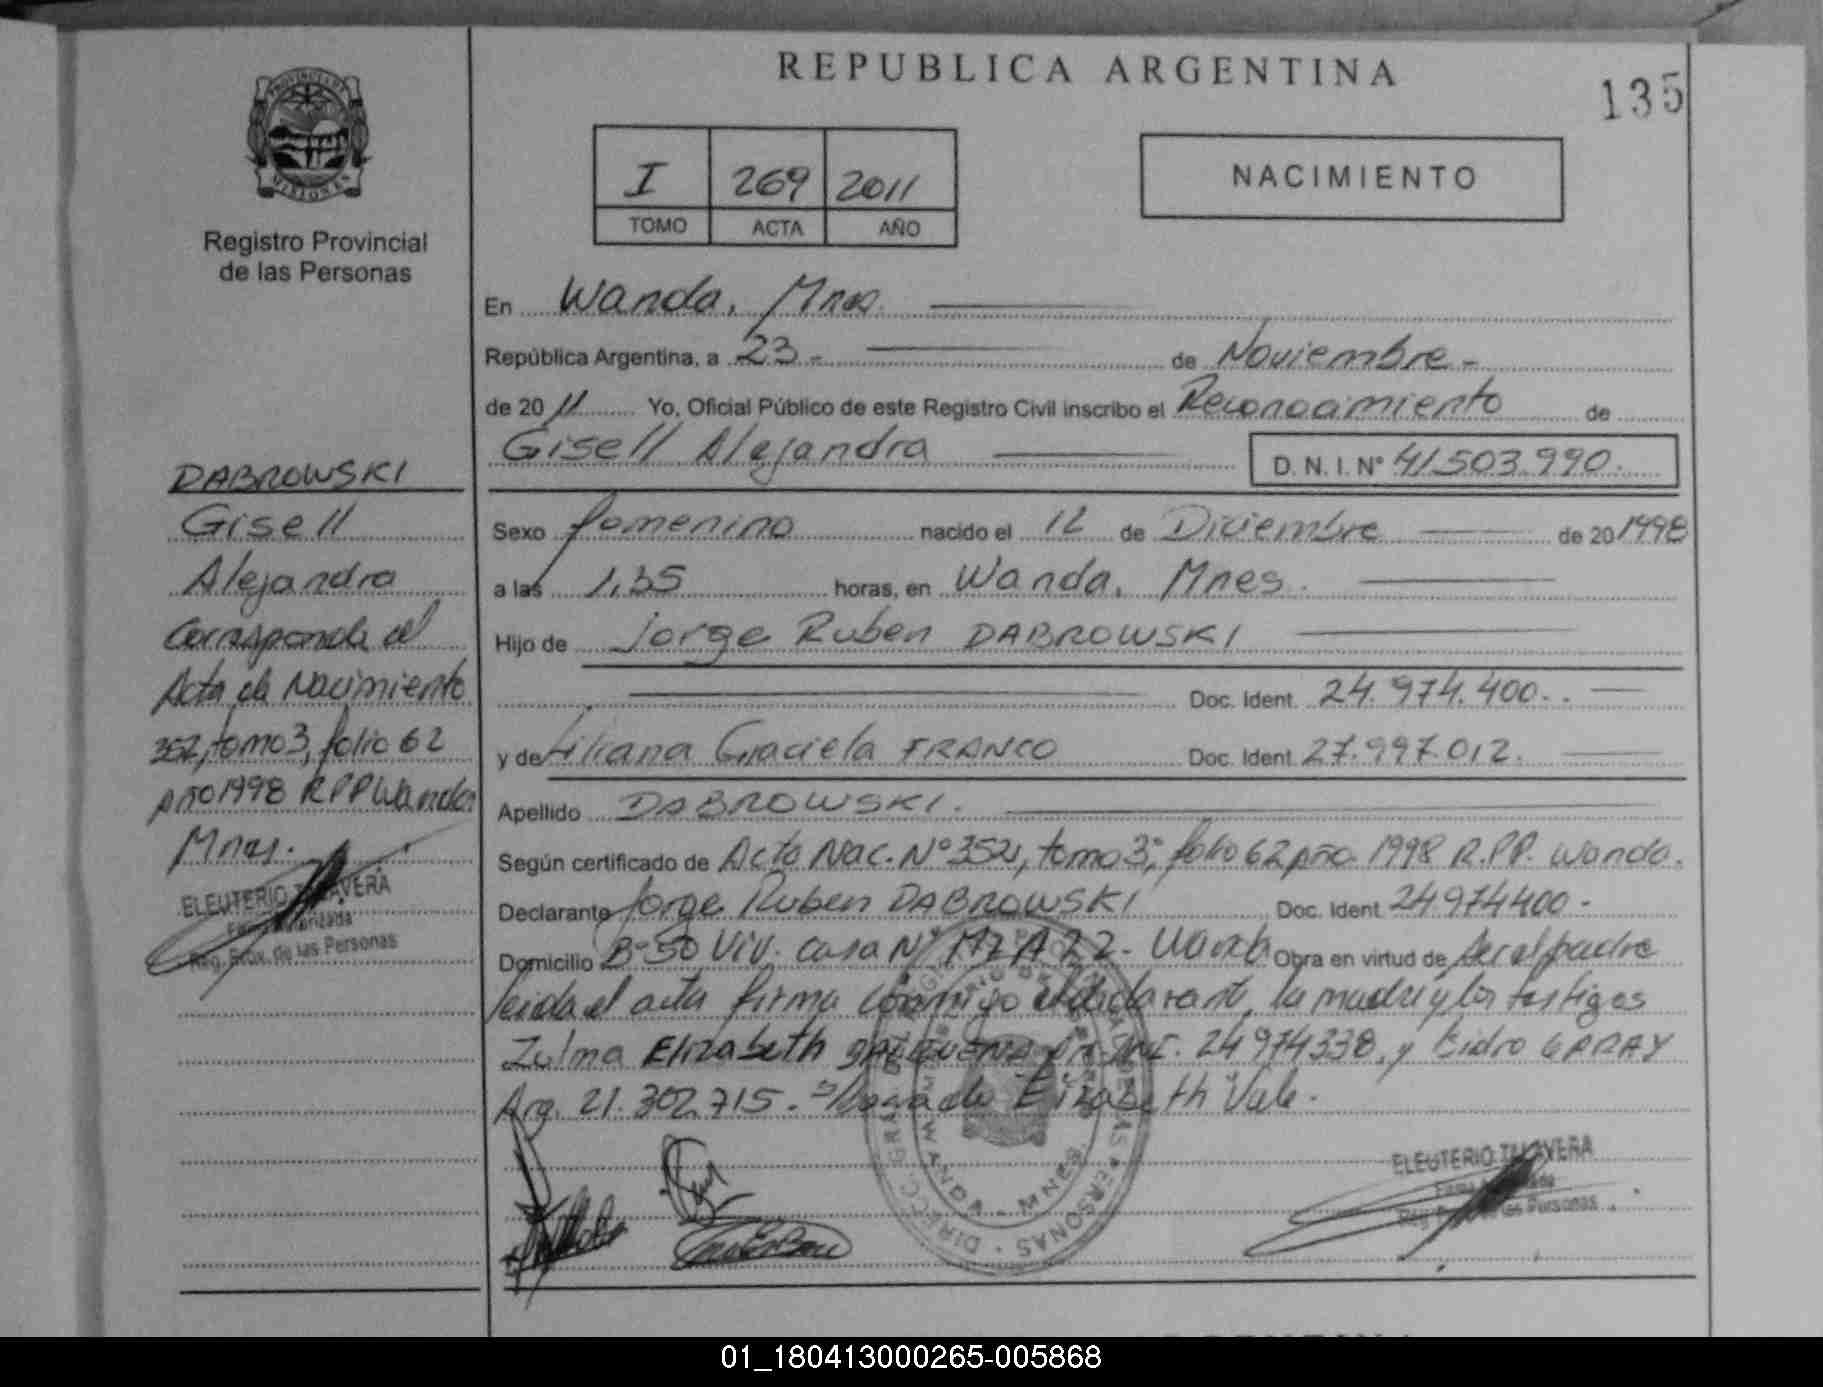 REPUBLICA ARGENTINA
135
PROVINCIA DE MISIONES
Registro Provincial
de las Personas
I 269 2011
TOMO ACTA AÑO
NACIMIENTO
En Wanda, Mnes.
República Argentina, a 23 - de Noviembre -
de 20 11 Yo, Oficial Público de este Registro Civil inscribo el Reconocimiento de
Gisell Alejandra D. N. I. N° 41.503.990.
Sexo femenino nacido el 12 de Diciembre de 20 1998
a las 1,35 horas, en Wanda, Mnes.
Hijo de Jorge Ruben DABROWSKI
Doc. Ident. 24.974.400.
y de Liliana Graciela FRANCO Doc. Ident. 27.997.012.
Apellido DABROWSKI.
Según certificado de Acta Nac. N° 352, tomo 3°, folio 62 año 1998 R.P.P. Wanda.
Declarante Jorge Ruben DABROWSKI Doc. Ident. 24974400 -
Domicilio B° 50 Viv. casa N° MZA 22 - Wanda Obra en virtud de ser el padre
leida el acta firma conmigo el declarante, la madre y los testigos
Zulma Elizabeth 24974338, y Isidro GARAY
Arg. 21.302.715. Elizabeth Vale.
DABROWSKI
Gisell
Alejandra
Corresponde al
Acta de Nacimiento
352, tomo 3, folio 62
año 1998 RPP Wanda
Mnes.
ELEUTERIO TALAVERA
Firma Autorizada
Reg. Prov. de las Personas
WANDA - MNES.
ELEUTERIO TALAVERA
Firma Autorizada
Reg. Prov. de las Personas
01_180413000265-005868